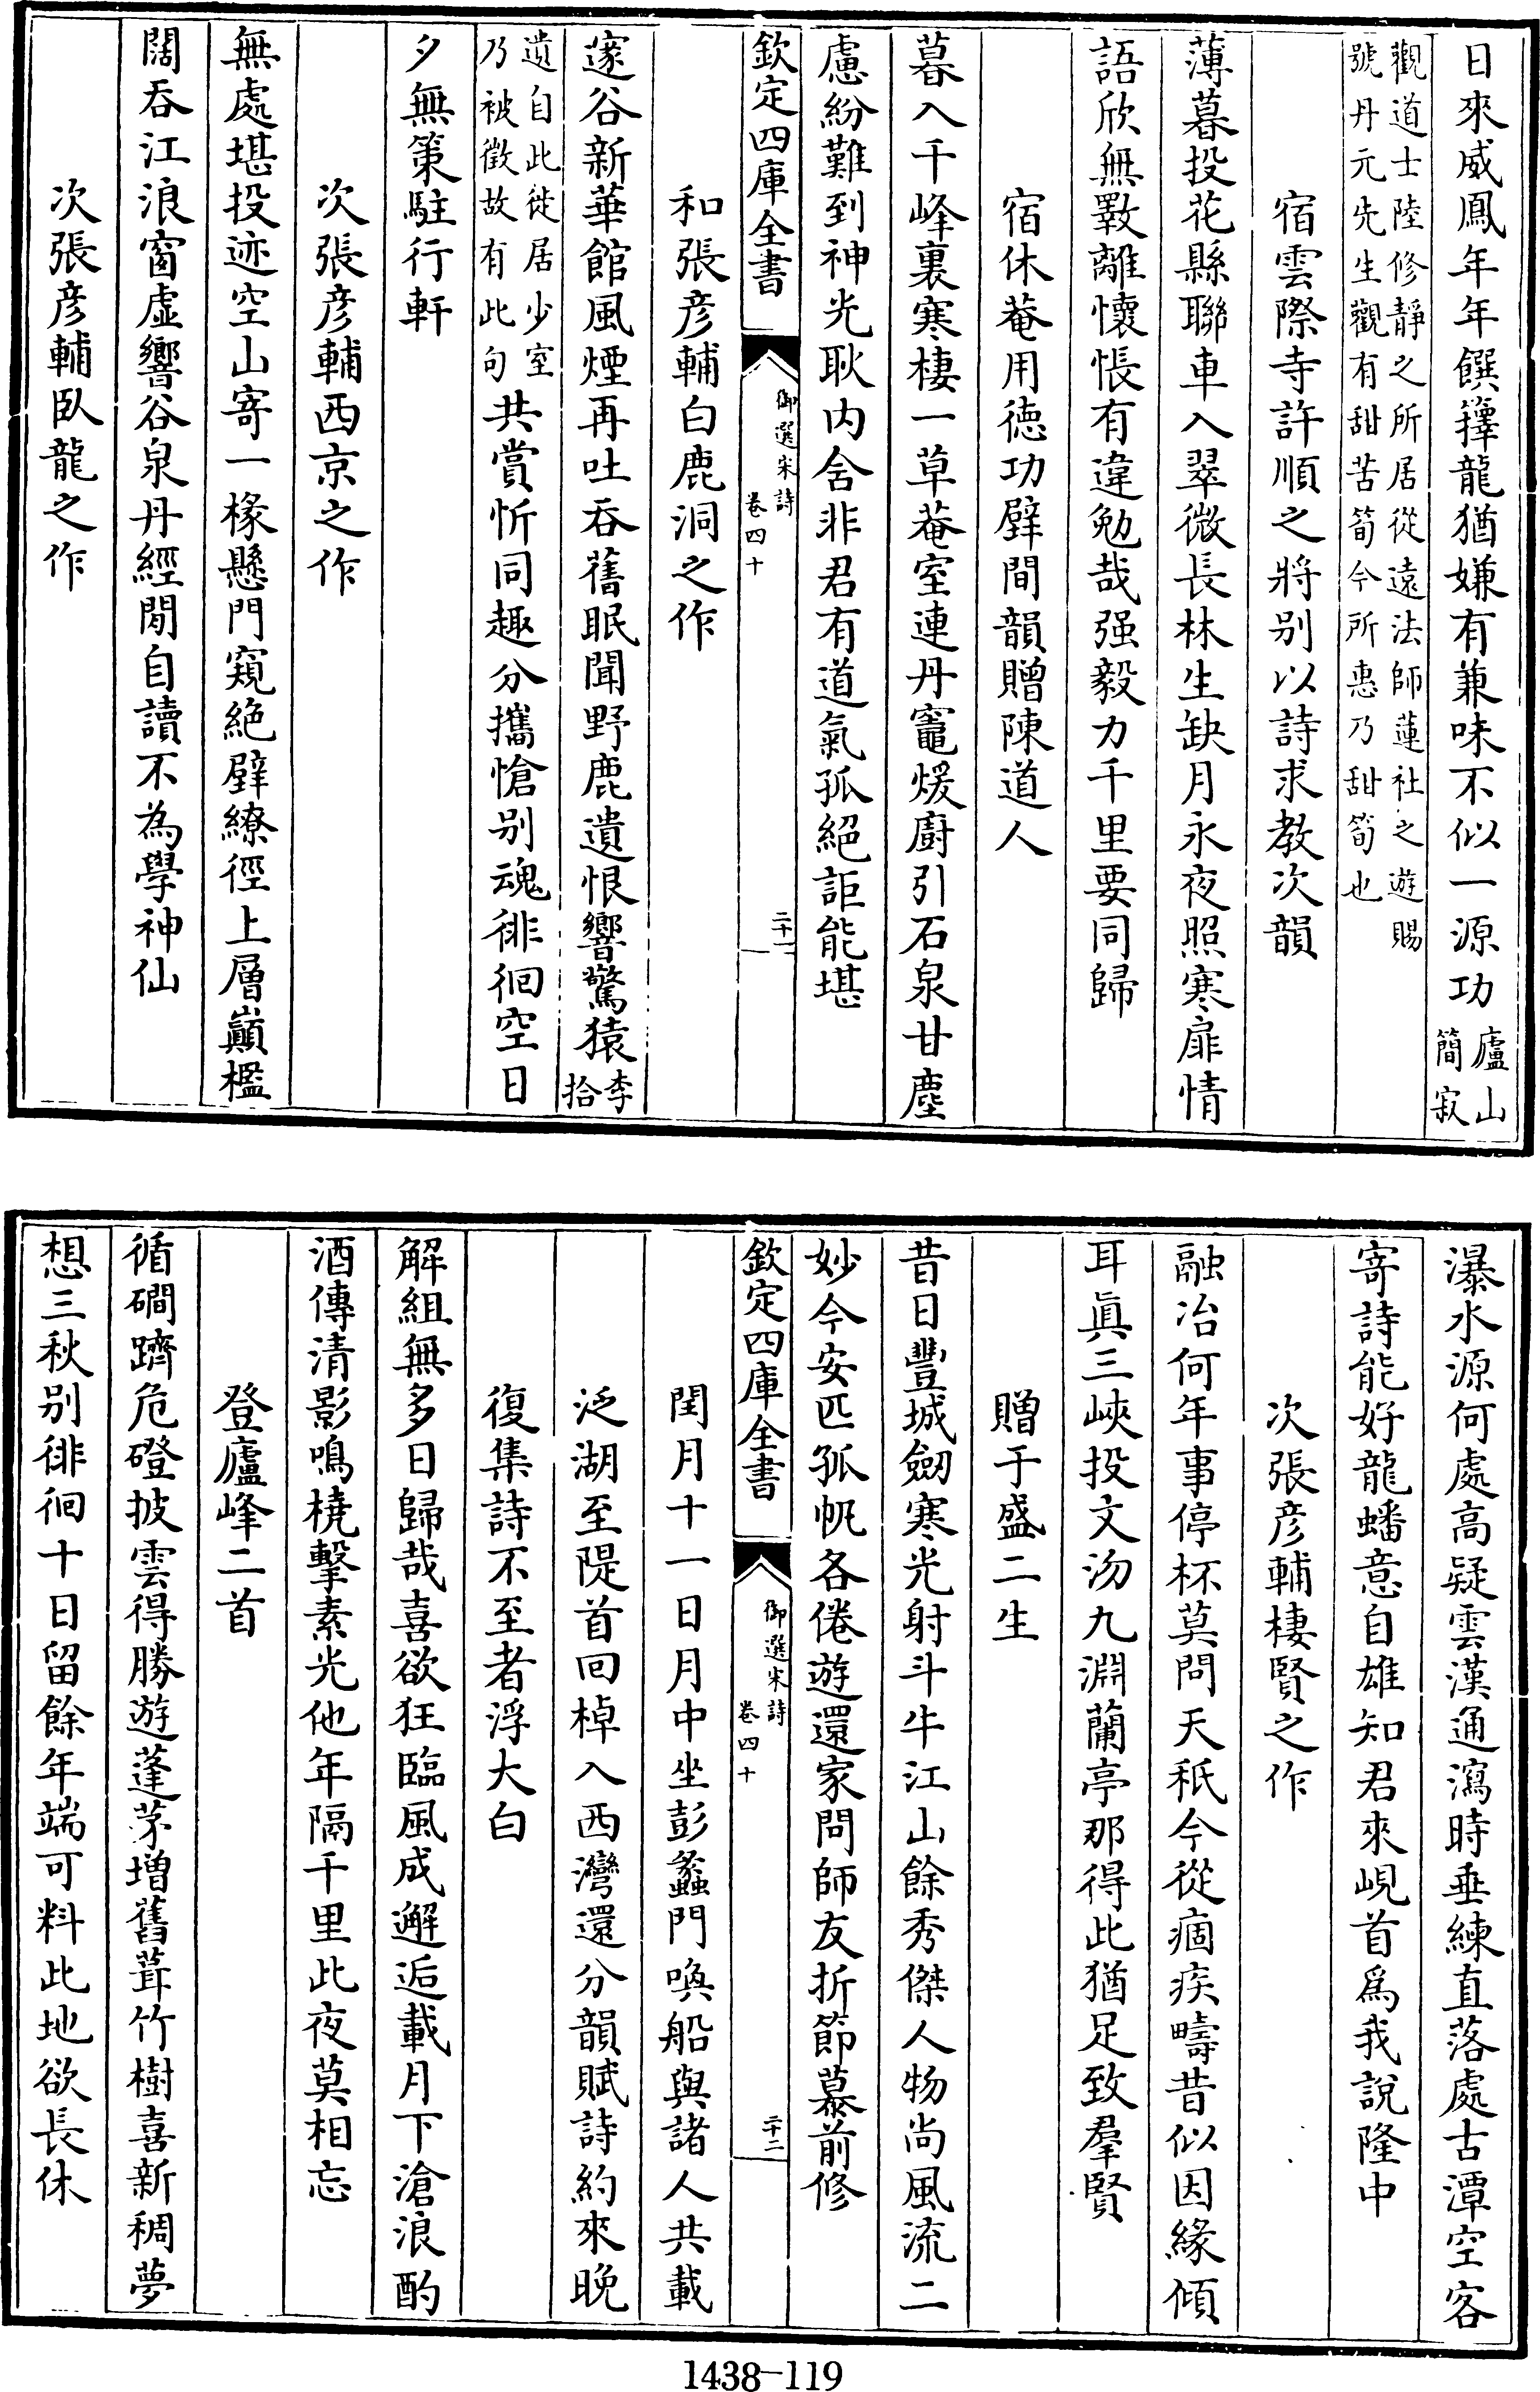 日來威鳳年年饌籜龍猶嫌有兼味不似一源功廬山簡寂
觀道士陸修靜之所居從遠法師蓮社之遊賜
號丹元先生觀有甜苦筍今所惠乃甜筍也
宿雲際寺許順之將别以詩求教次韻
薄暮投花縣聯車入翠微長林生缺月永夜照寒扉情
語欣無斁離懷悵有違勉哉强毅力千里要同歸
宿休菴用德功壁間韻贈陳道人
暮入千峰裏寒棲一草菴室連丹竈煖廚引石泉甘塵
慮紛難到神光耿内含非君有道氣孤絕詎能堪
欽定四庫全書
御選宋詩
卷四十
二十一
和張彦輔白鹿洞之作
邃谷新華館風煙再吐吞舊眠聞野鹿遺恨響驚猿李拾
遺自此徙居少室
乃被徵故有此句
共賞忻同趣分攜愴别魂徘徊空日
夕無策駐行軒
次張彦輔西京之作
無處堪投迹空山寄一椽懸門窺絶壁繚徑上層巔檻
闊吞江浪窗虛響谷泉丹經閒自讀不為學神仙
次張彦輔臥龍之作
瀑水源何處高疑雲漢通瀉時垂練直落處古潭空客
寄詩能好龍蟠意自雄知君來峴首爲我說隆中
次張彦輔棲賢之作
融冶何年事停杯莫問天秖今從痼疾疇昔似因緣傾
耳眞三峽投文沕九淵蘭亭那得此猶足致羣賢
贈于盛二生
昔日豐城劒寒光射斗牛江山餘秀傑人物尚風流二
妙今安匹孤帆各倦遊還家問師友折節慕前修
欽定四庫全書
御選宋詩
卷四十
二十二
閏月十一日月中坐彭蠡門喚船與諸人共載
泛湖至隄首回棹入西灣還分韻賦詩約來晚
復集詩不至者浮大白
解組無多日歸哉喜欲狂臨風成邂逅載月下滄浪酌
酒傳清影鳴橈擊素光他年隔千里此夜莫相忘
登廬峰二首
循磵躋危磴披雲得勝遊蓬茅增舊葺竹樹喜新稠夢
想三秋别徘徊十日留餘年端可料此地欲長休
1438-119